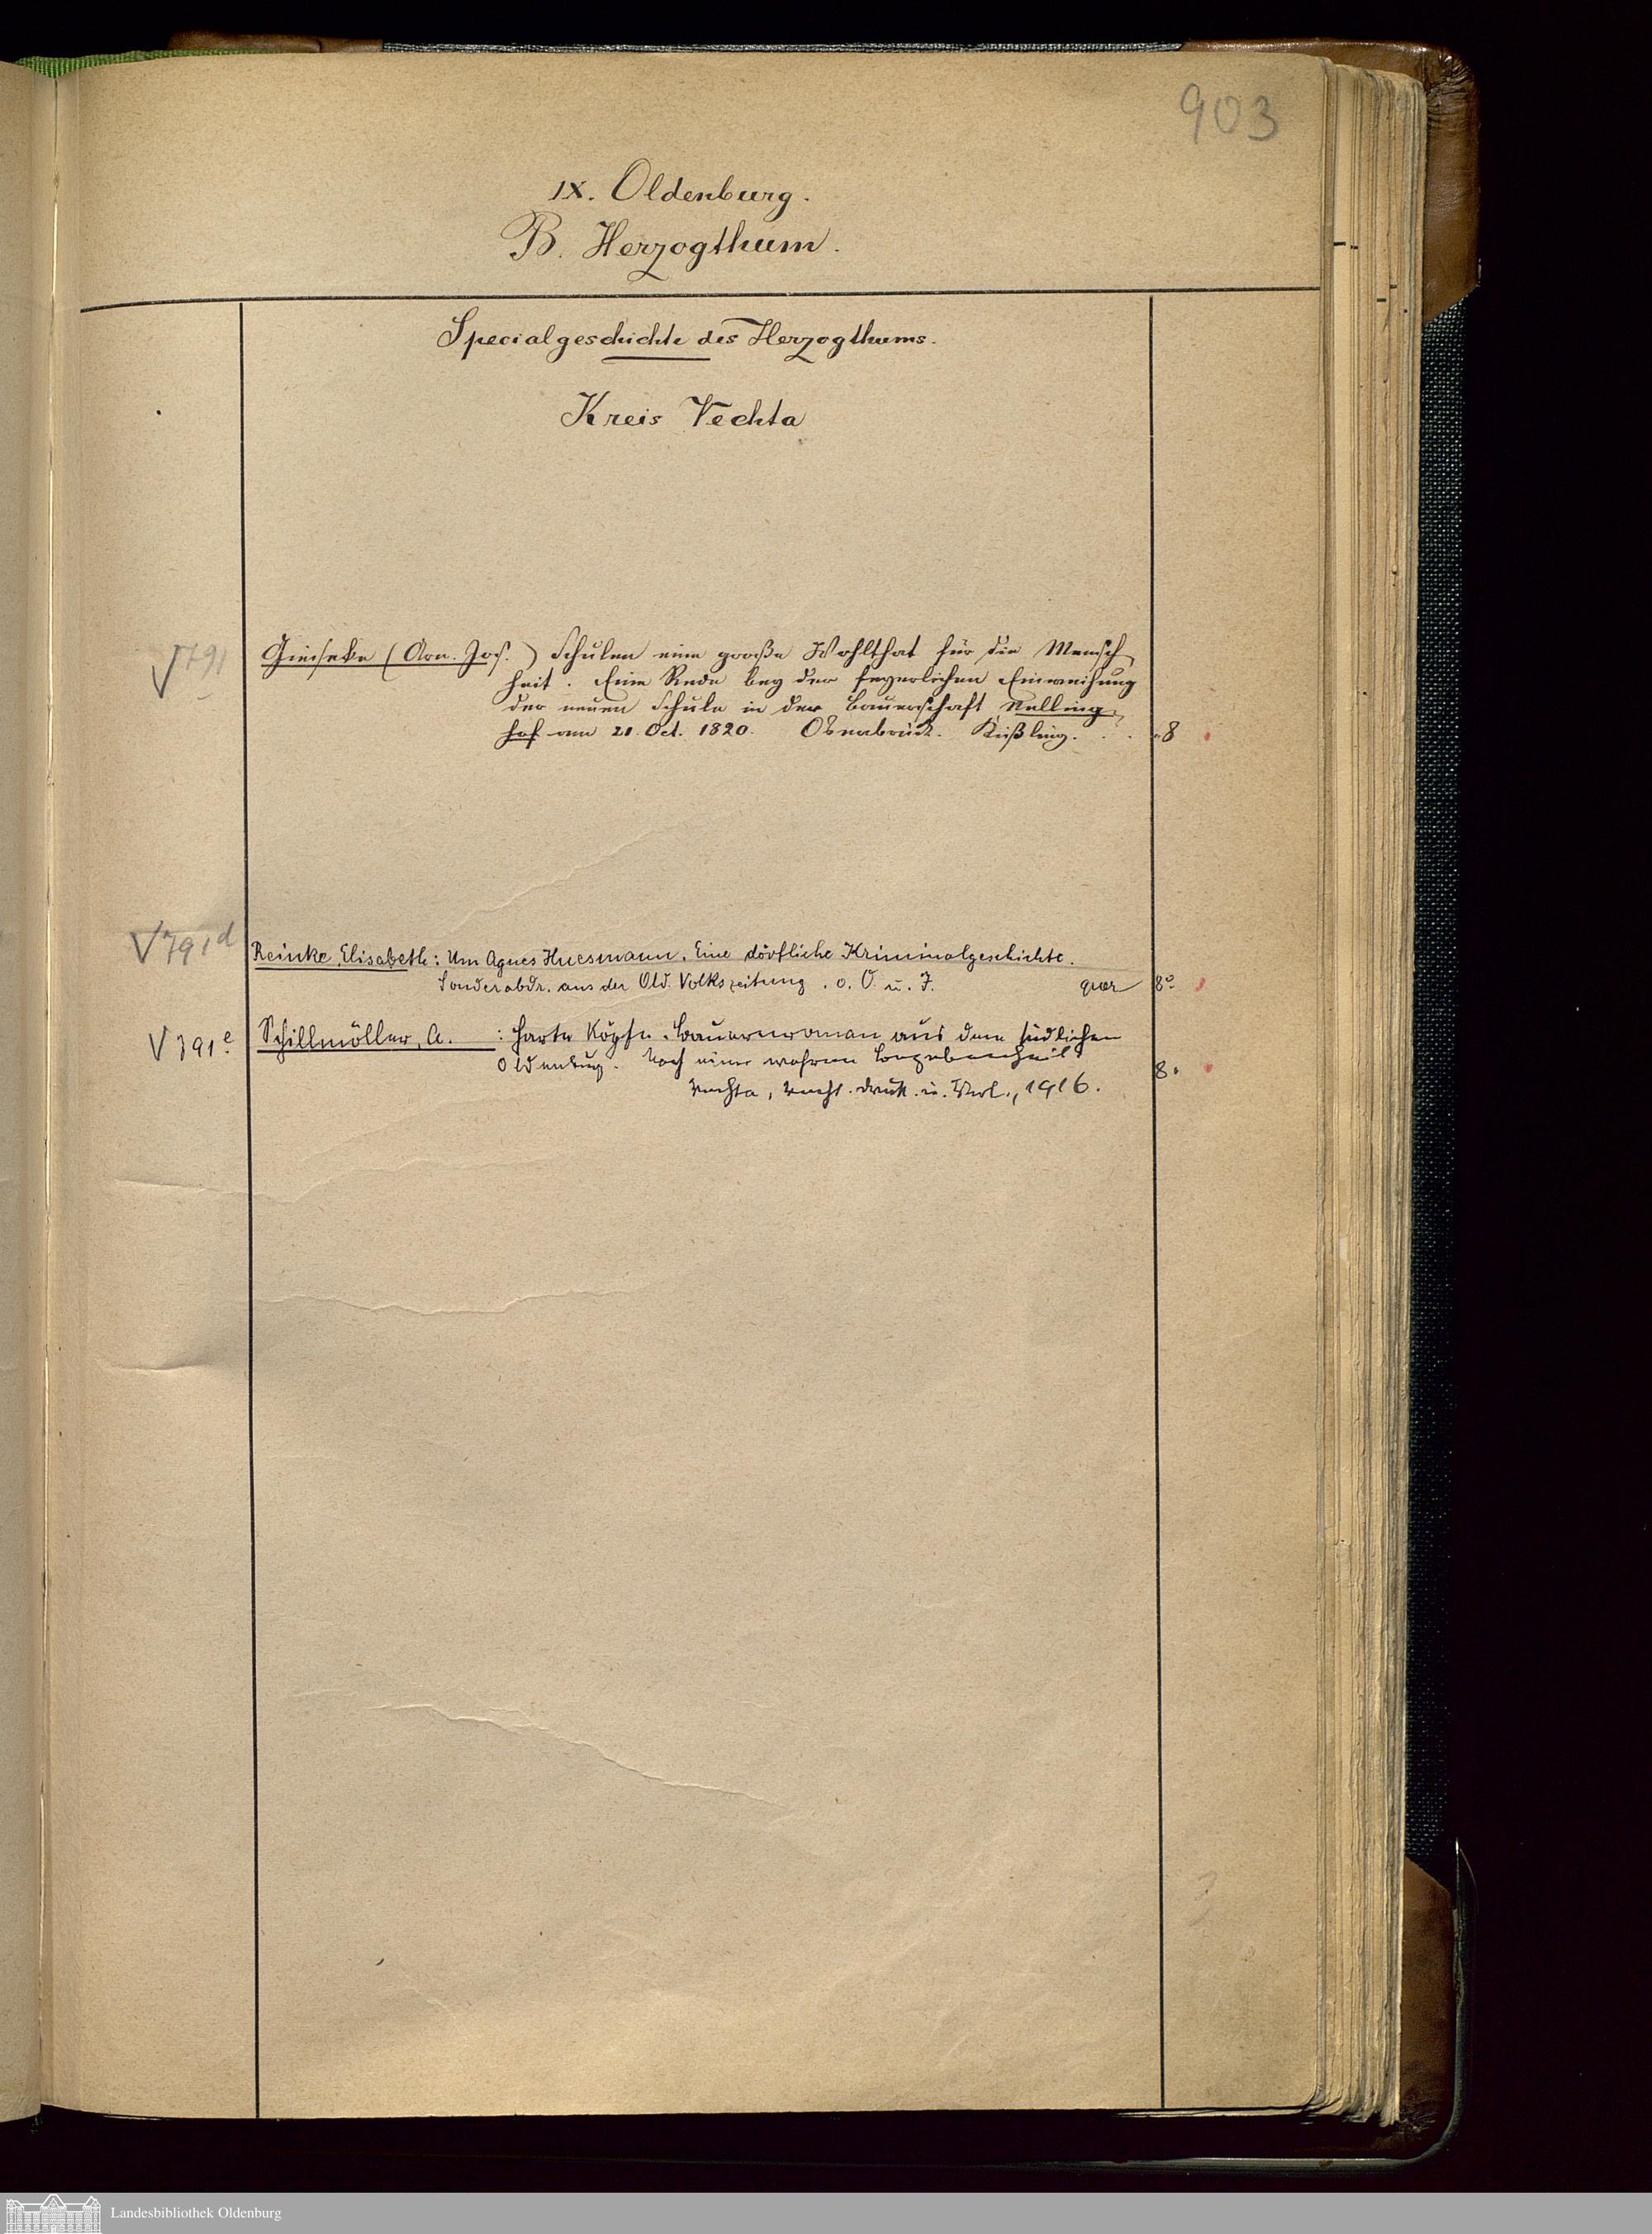 903
IX. Oldenburg.
B. Herzogthum.
Specialgeschichte des Herzogthums.
Kreis Vechta
V 791 Gieseke (Arn. Jos.) Schulen eine große Wohlthat für die Mensch
heit. Eine Rede bey der feyerlichen Einweihung
der neuen Schule in der Bauerschaft Nelling
hof am 21. Oct. 1820. Osnabrück. Kißling. . . 8
V 791d Reinke, Elisabeth: Um Agnes Huesmann. Eine dörfliche Kriminalgeschichte.
Sonderabdr. aus der Old. Volkszeitung. o. O. u. J. quer 8°
V 391e Schillmöller, A. : Harte Köpfe. Bauernroman aus dem südlichen
Oldenburg. Nach einer wahren Begebenheit.
Vechta, Vecht. Druck. u. Verl., 1916. 8°
Landesbibliothek Oldenburg